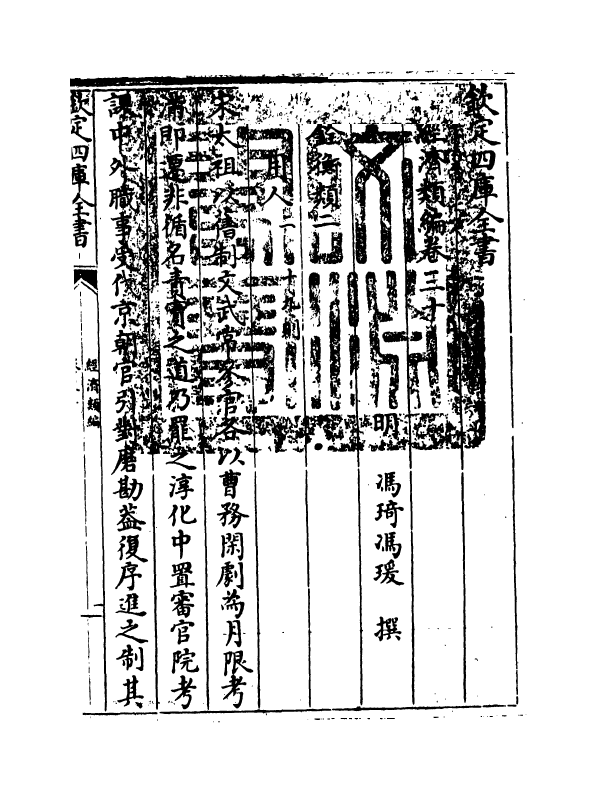 欽定四庫全書
經濟類編卷三十
明 馮琦馮瑗 撰
銓衡類二
用人二 十九則
宋太祖以舊制文武常參官各以曹務閑劇為月限考
滿即遷非循名責實之道乃罷之淳化中置審官院考
課中外職事受代京朝官引對磨勘葢復序進之制其
欽定四庫全書
經濟類編